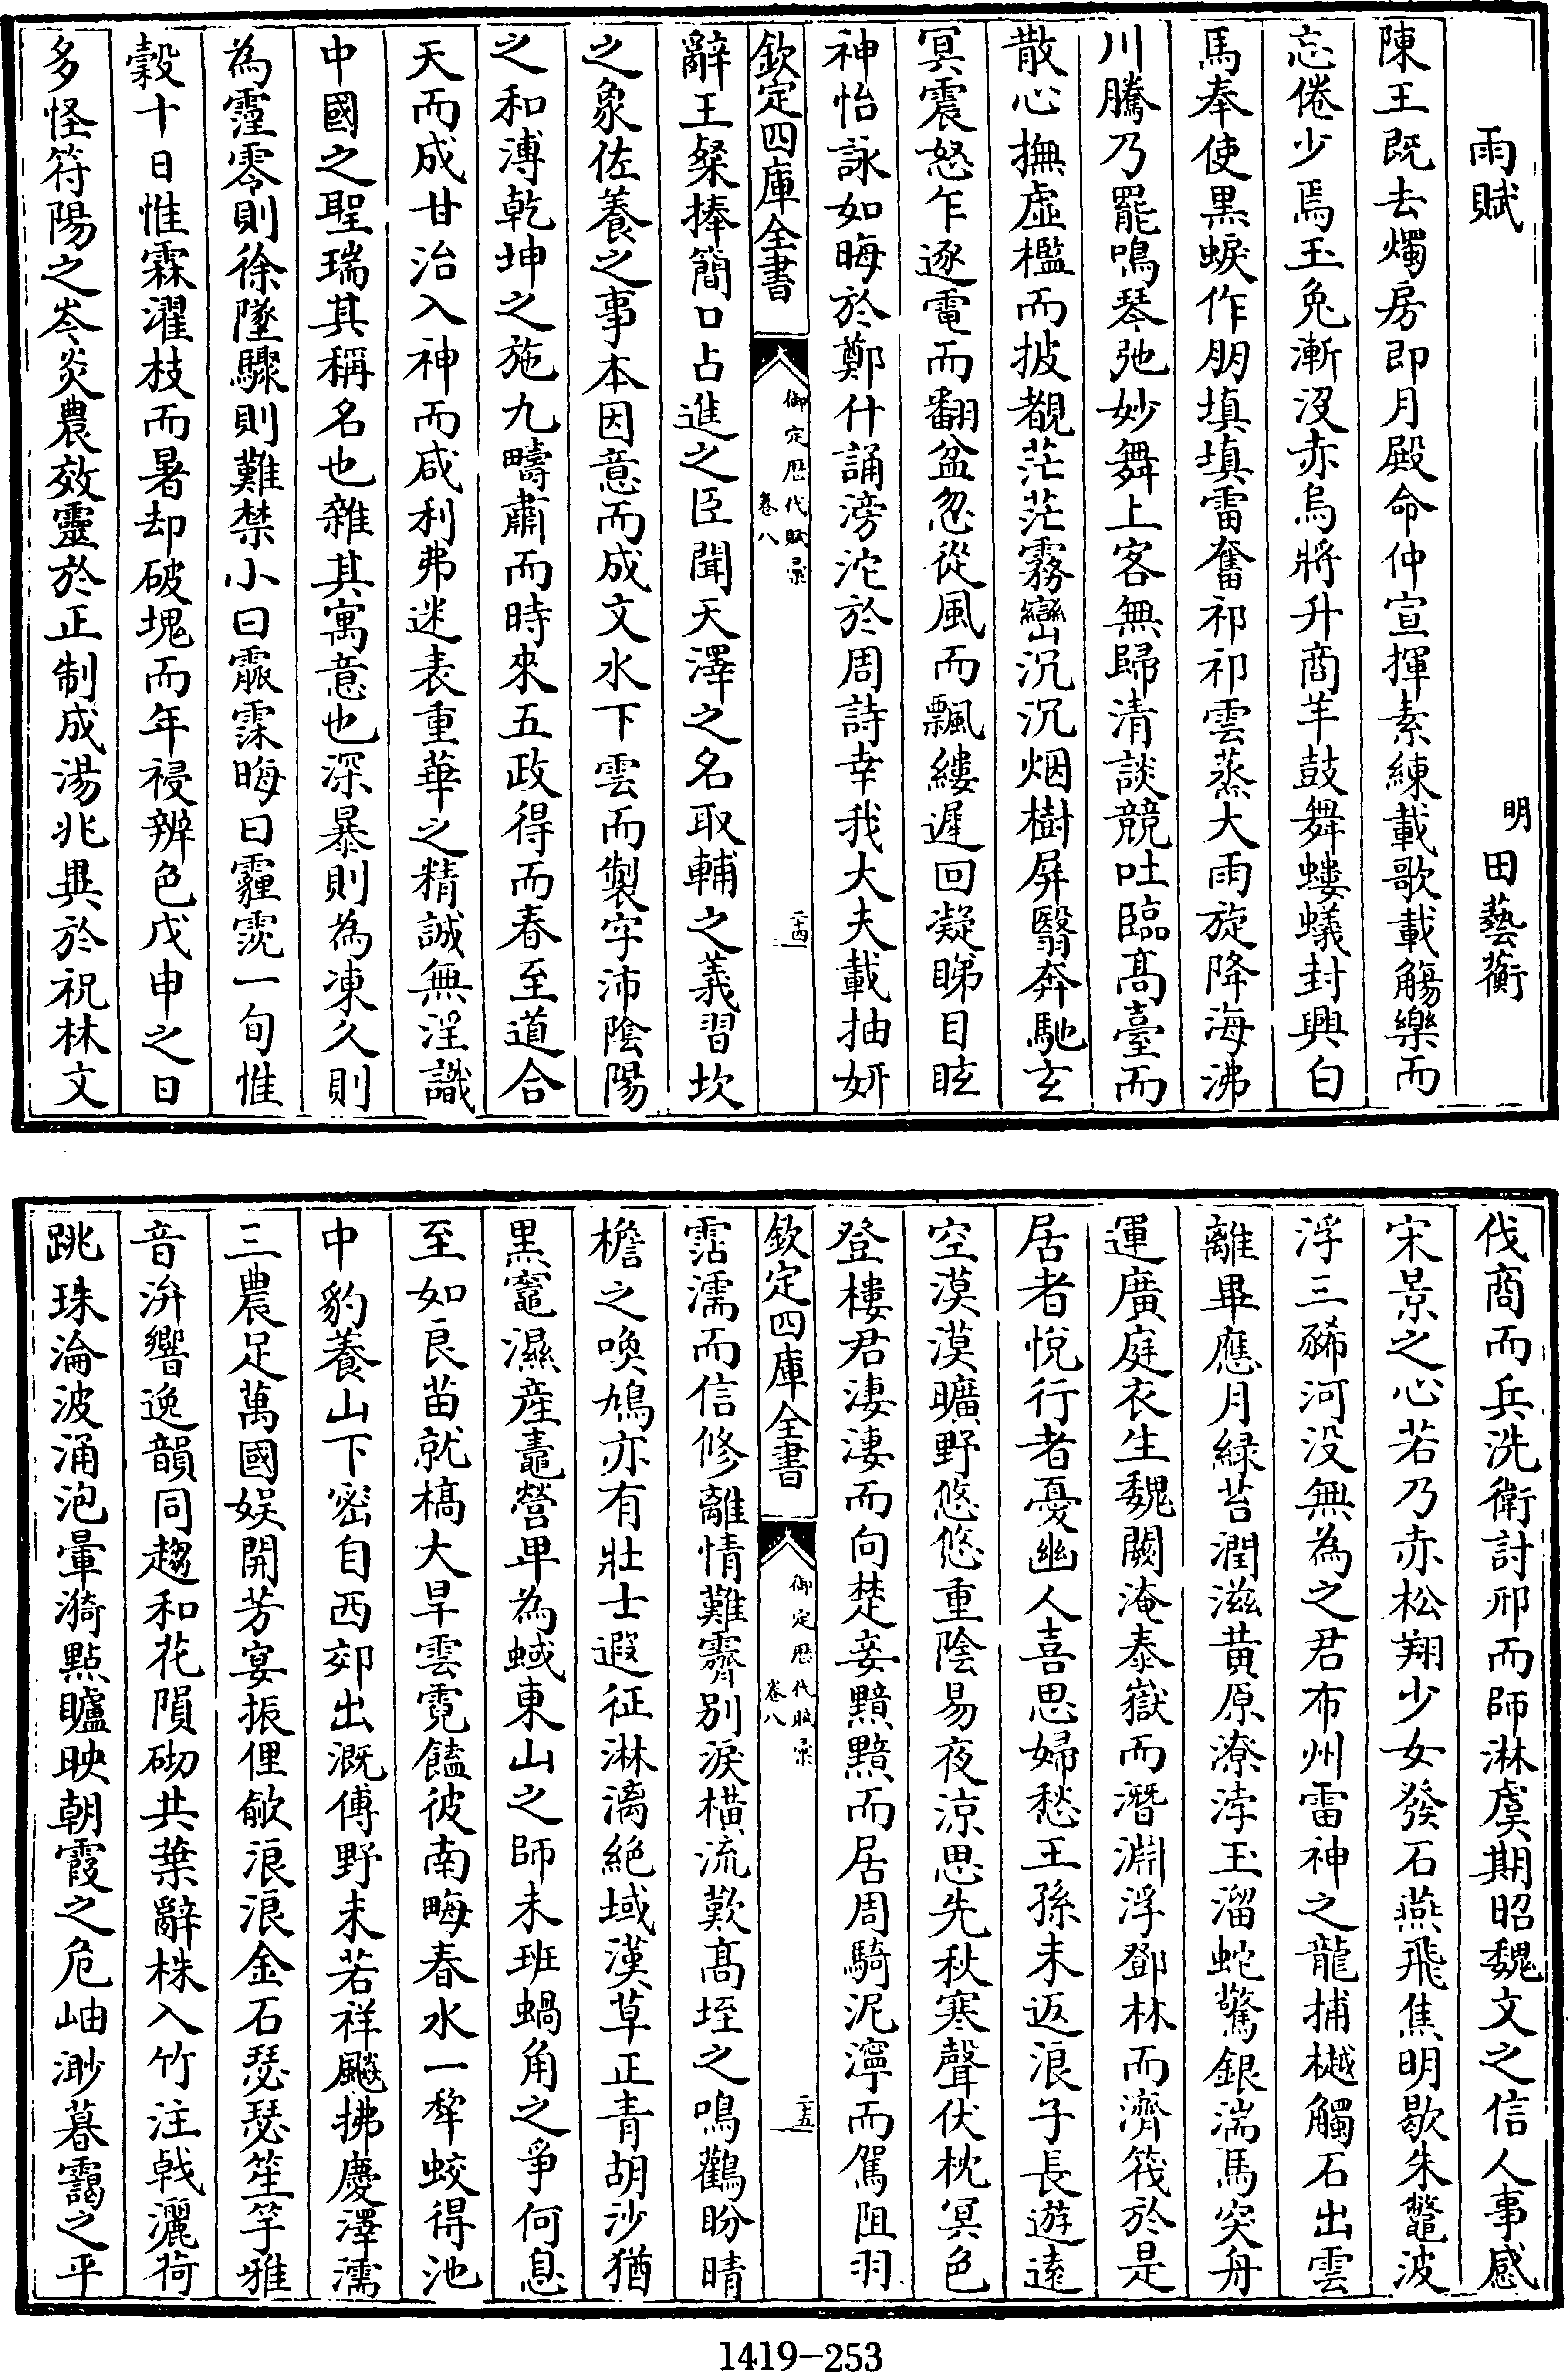 雨賦
明　田藝蘅
陳王既去燭房即月殿命仲宣揮素練載歌載觴樂而
忘倦少焉玉兔漸沒赤烏將升商羊鼓舞螻蟻封興白
馬奉使黑蜧作朋填填雷奮祁祁雲蒸大雨旋降海沸
川騰乃罷鳴琴弛妙舞上客無歸清談競吐臨高臺而
散心撫虛檻而披覩茫茫霧巒沉沉烟樹屏翳奔馳玄
冥震怒乍逐電而翻盆忽從風而飄縷遲回凝睇目眩
神怡詠如晦於鄭什誦滂沱於周詩幸我大夫載抽妍
欽定四庫全書
御定歷代賦彙
卷八
二十四
辭王粲捧簡口占進之臣聞天澤之名取輔之義習坎
之象佐養之事本因意而成文水下雲而製字沛陰陽
之和溥乾坤之施九疇肅而時來五政得而春至道合
天而成甘治入神而咸利弗迷表重華之精誠無淫識
中國之聖瑞其稱名也雜其寓意也深暴則為凍久則
為霪零則徐墜驟則難禁小曰霢霂晦曰霾霃一旬惟
穀十日惟霖濯枝而暑却破塊而年祲辨色戊申之日
多怪符陽之岑炎農效靈於正制成湯兆異於祝林文
伐商而兵洗衛討邢而師淋虞期昭魏文之信人事感
宋景之心若乃赤松翔少女發石燕飛焦明歇朱鼈波
浮三豨河没無為之君布州雷神之龍捕樾觸石出雲
離畢應月緑苔潤滋黄原潦浡玉溜蛇驚銀湍馬突舟
運廣庭衣生魏闕淹泰嶽而潛淵浮鄧林而濟筏於是
居者悅行者憂幽人喜思婦愁王孫未返浪子長遊遠
空漠漠曠野悠悠重陰易夜涼思先秋寒聲伏枕冥色
登樓君淒淒而向楚妾黯黯而居周騎泥濘而駕阻羽
欽定四庫全書
御定歷代賦彙
卷八
二十五
霑濡而信修離情難霽别淚横流歎高垤之鳴鸛盼晴
檐之喚鳩亦有壯士遐征淋漓絶域漢草正青胡沙猶
黒竈濕産鼃營卑為蜮東山之師未班蝸角之爭何息
至如良苗就槁大旱雲霓饁彼南畮春水一犂蛟得池
中豹養山下密自西郊出溉傅野未若祥飈拂慶澤濡
三農足萬國娱開芳宴振俚歈浪浪金石瑟瑟笙竽雅
音泲響逸韻同趨和花隕砌共葉辭株入竹注戟灑荷
跳珠淪波涌泡暈漪點驢映朝霞之危岫渺暮靄之平
1419-253